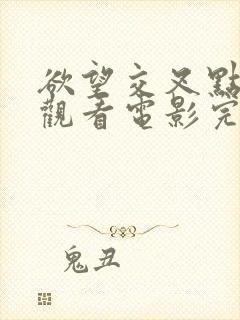 欲望交叉點
觀看電影完
鬼丑